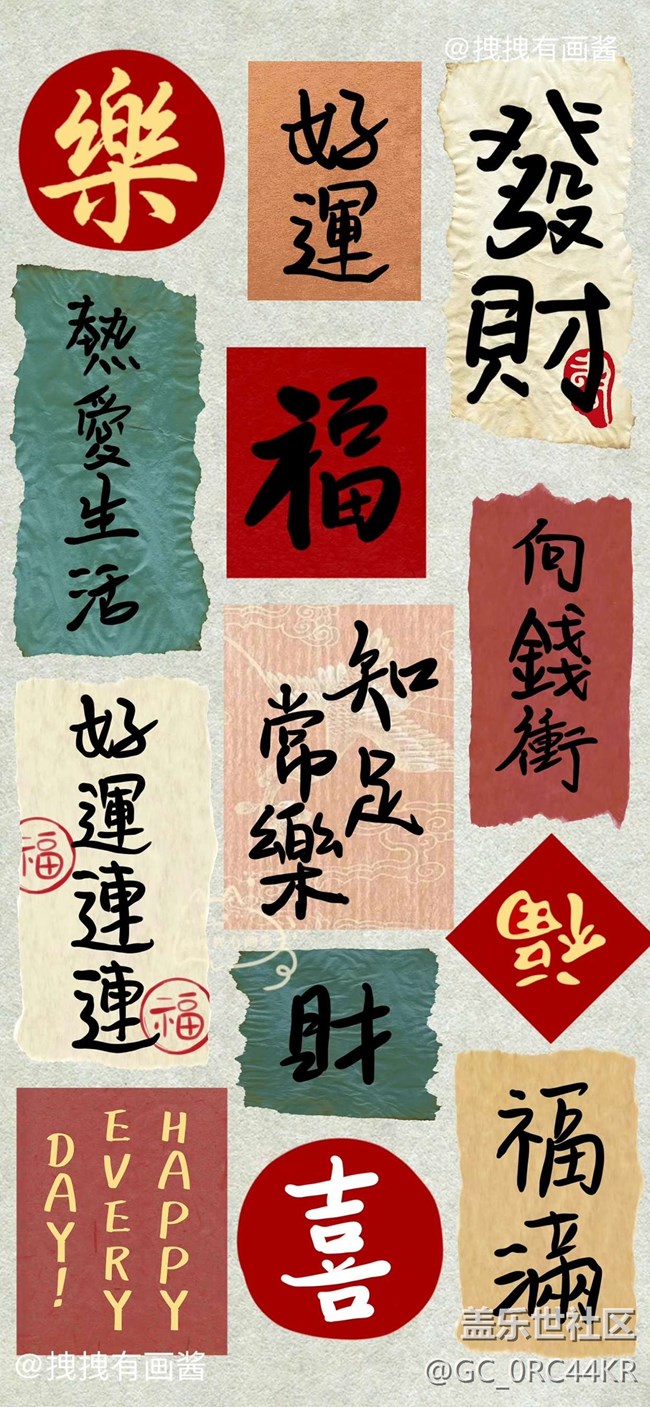 @拽拽有画酱
樂
好運
發財
熱愛生活
福
向錢衝
知足
常樂
好運連連
福
福
福
財
HAPPY
EVERY
DAY!
喜
福滿
盖乐世社区
@拽拽有画酱
@GC_0RC44KR